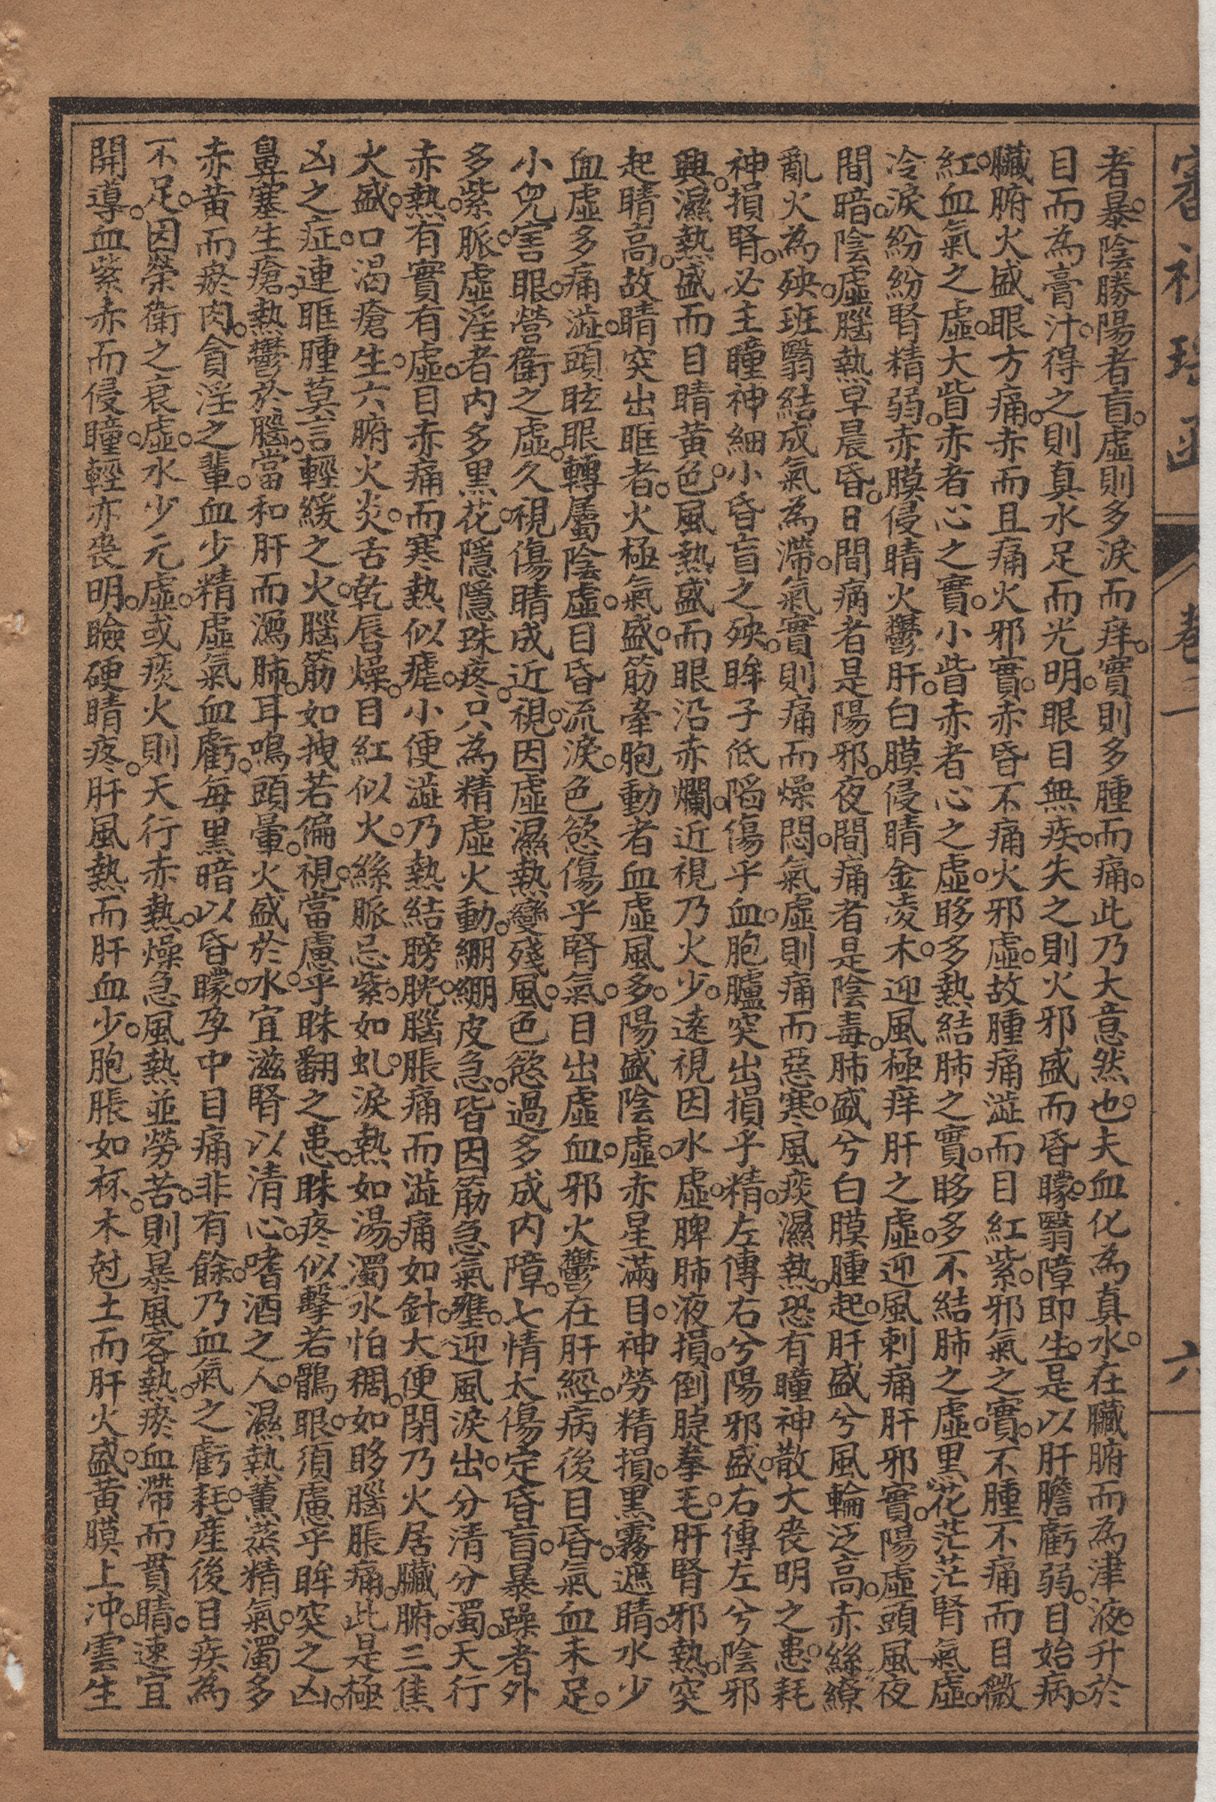 審視瑤函 卷二 六
者暴。陰勝陽者盲。虛則多淚而痒。實則多腫而痛。此乃大意然也。夫血化為真水。在臟腑而為津液。升於
目而為膏汁。得之則真水足而光明。眼目無疾。失之則火邪盛而昏矇。翳障即生。是以肝膽虧弱。目始病。
臟腑火盛眼方痛。赤而且痛火邪實。赤昏不痛火邪虛。故腫痛澁而目紅紫。邪氣之實。不腫不痛而目微
紅。血氣之虛。大眥赤者心之實。小眥赤者心之虛。眵多熱結肺之實。眵多不結肺之虛。黑花茫茫腎氣虛。
冷淚紛紛腎精弱。赤膜侵睛火鬱肝。白膜侵睛金凌木。迎風極痒肝之虛。迎風刺痛肝邪實。陽虛頭風夜
間暗。陰虛腦熱早晨昏。日間痛者是陽邪。夜間痛者是陰毒。肺盛兮白膜腫起。肝盛兮風輪泛高。赤絲繚
亂火為殃。班翳結成氣為滯。氣實則痛而燥悶。氣虛則痛而惡寒。風痰濕熱。恐有瞳神散大喪明之患。耗
神損腎。必主瞳神細小昏盲之殃。眸子低陷傷乎血。胞臚突出損乎精。左傳右兮陽邪盛。右傳左兮陰邪
興。濕熱盛而目睛黃色。風熱盛而眼沿赤爛。近視乃火少。遠視因水虛。脾肺液損。倒睫拳毛。肝腎邪熱。突
起睛高。故睛突出眶者。火極氣盛。筋牽胞動者血虛風多。陽盛陰虛。赤星滿目。神勞精損。黑霧遮睛。水少
血虛多痛澁。頭眩眼轉屬陰虛。目昏流淚。色慾傷乎腎氣。目出虛血。邪火鬱在肝經。病後目昏。氣血未足。
小兒害眼。營衛之虛。久視傷睛成近視。因虛濕熱變殘風。色慾過多成內障。七情太傷定昏盲。暴躁者外
多紫脈。虛淫者內多黑花。隱隱珠疼。只為精虛火動。繃繃皮急。皆因筋急氣壅。迎風淚出。分清分濁。天行
赤熱。有實有虛。目赤痛而寒熱似瘧。小便澁乃熱結膀胱。腦脹痛而澁痛如針。大便閉乃火居臟腑。三焦
火盛。口渴瘡生。六腑火炎。舌乾唇燥。目紅似火。絲脈忌紫如虬。淚熱如湯。濁水怕稠。如眵腦脹痛。此是極
凶之症。連眶腫莫言輕緩之火。腦筋如拽若偏視。當慮乎昧翻之患。昧疼似擊若鶻眼。須慮乎眸突之凶。
鼻塞生瘡。熱鬱於腦。當和肝而瀉肺。耳鳴頭暈。火盛於水。宜滋腎以清心。嗜酒之人。濕熱薰蒸精氣。濁多
赤黃而瘀肉。貪淫之輩。血少精虛氣血虧。每黑暗以昏矇。孕中目痛非有餘。乃血氣之虧耗。產後目疾為
不足。因榮衛之衰虛。水少元虛。或痰火則天行赤熱。燥急風熱並勞苦。則暴風客熱。瘀血滯而貫睛。速宜
開導。血紫赤而侵瞳。輕亦喪明。瞼硬睛疼。肝風熱而肝血少。胞脹如杯。木尅土而肝火盛。黃膜上沖。雲生